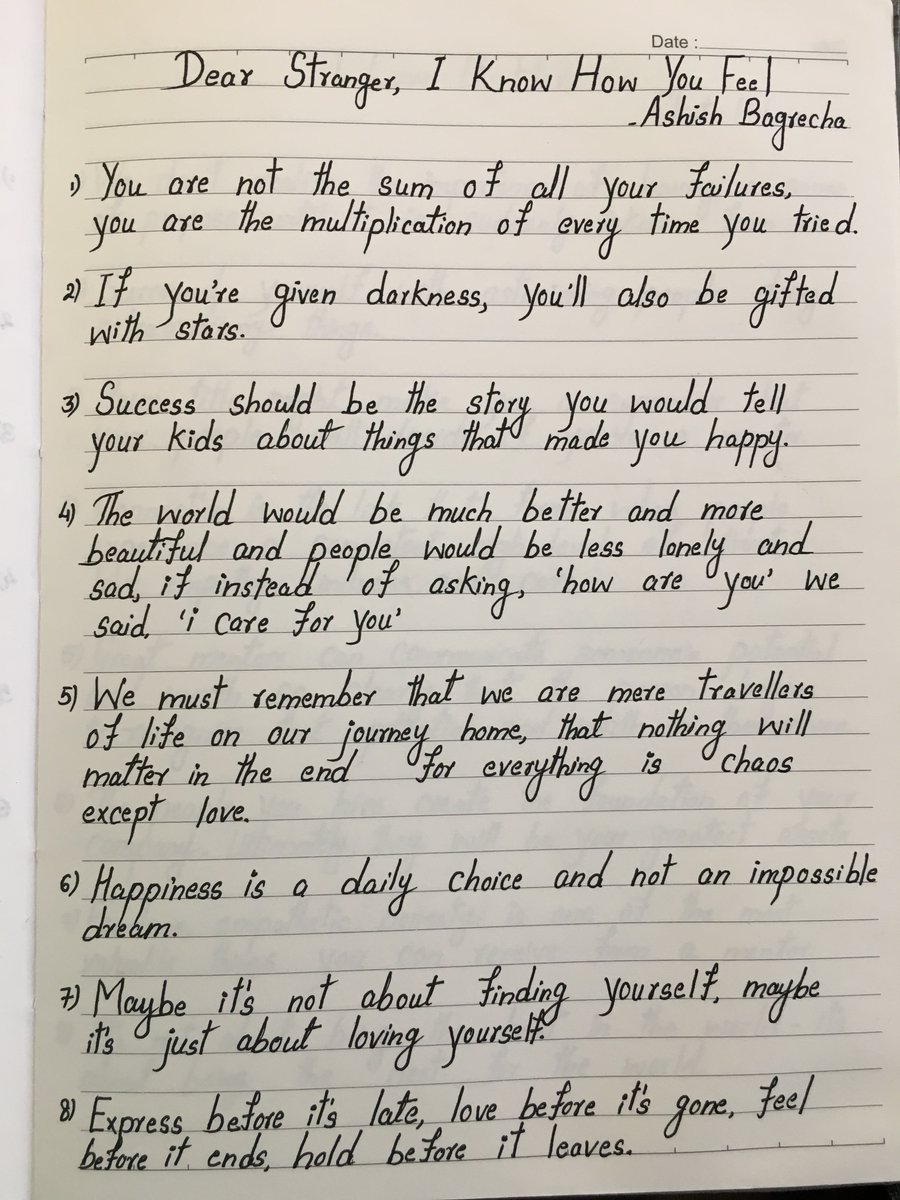 Date :
Dear Stranger, I Know How You Feel
- Ashish Bagrecha
1) You are not the sum of all your failures,
you are the multiplication of every time you tried.
2) If you're given darkness, you'll also be gifted
with stars.
3) Success should be the story you would tell
your kids about things that made you happy.
4) The world would be much better and more
beautiful and people would be less lonely and
sad, if instead of asking, 'how are you' we
said, 'i care for you'
5) We must remember that we are mere travellers
of life on our journey home, that nothing will
matter in the end for everything is chaos
except love.
6) Happiness is a daily choice and not an impossible
dream.
7) Maybe it's not about finding yourself, maybe
it's just about loving yourself.
8) Express before it's late, love before it's gone, feel
before it ends, hold before it leaves.